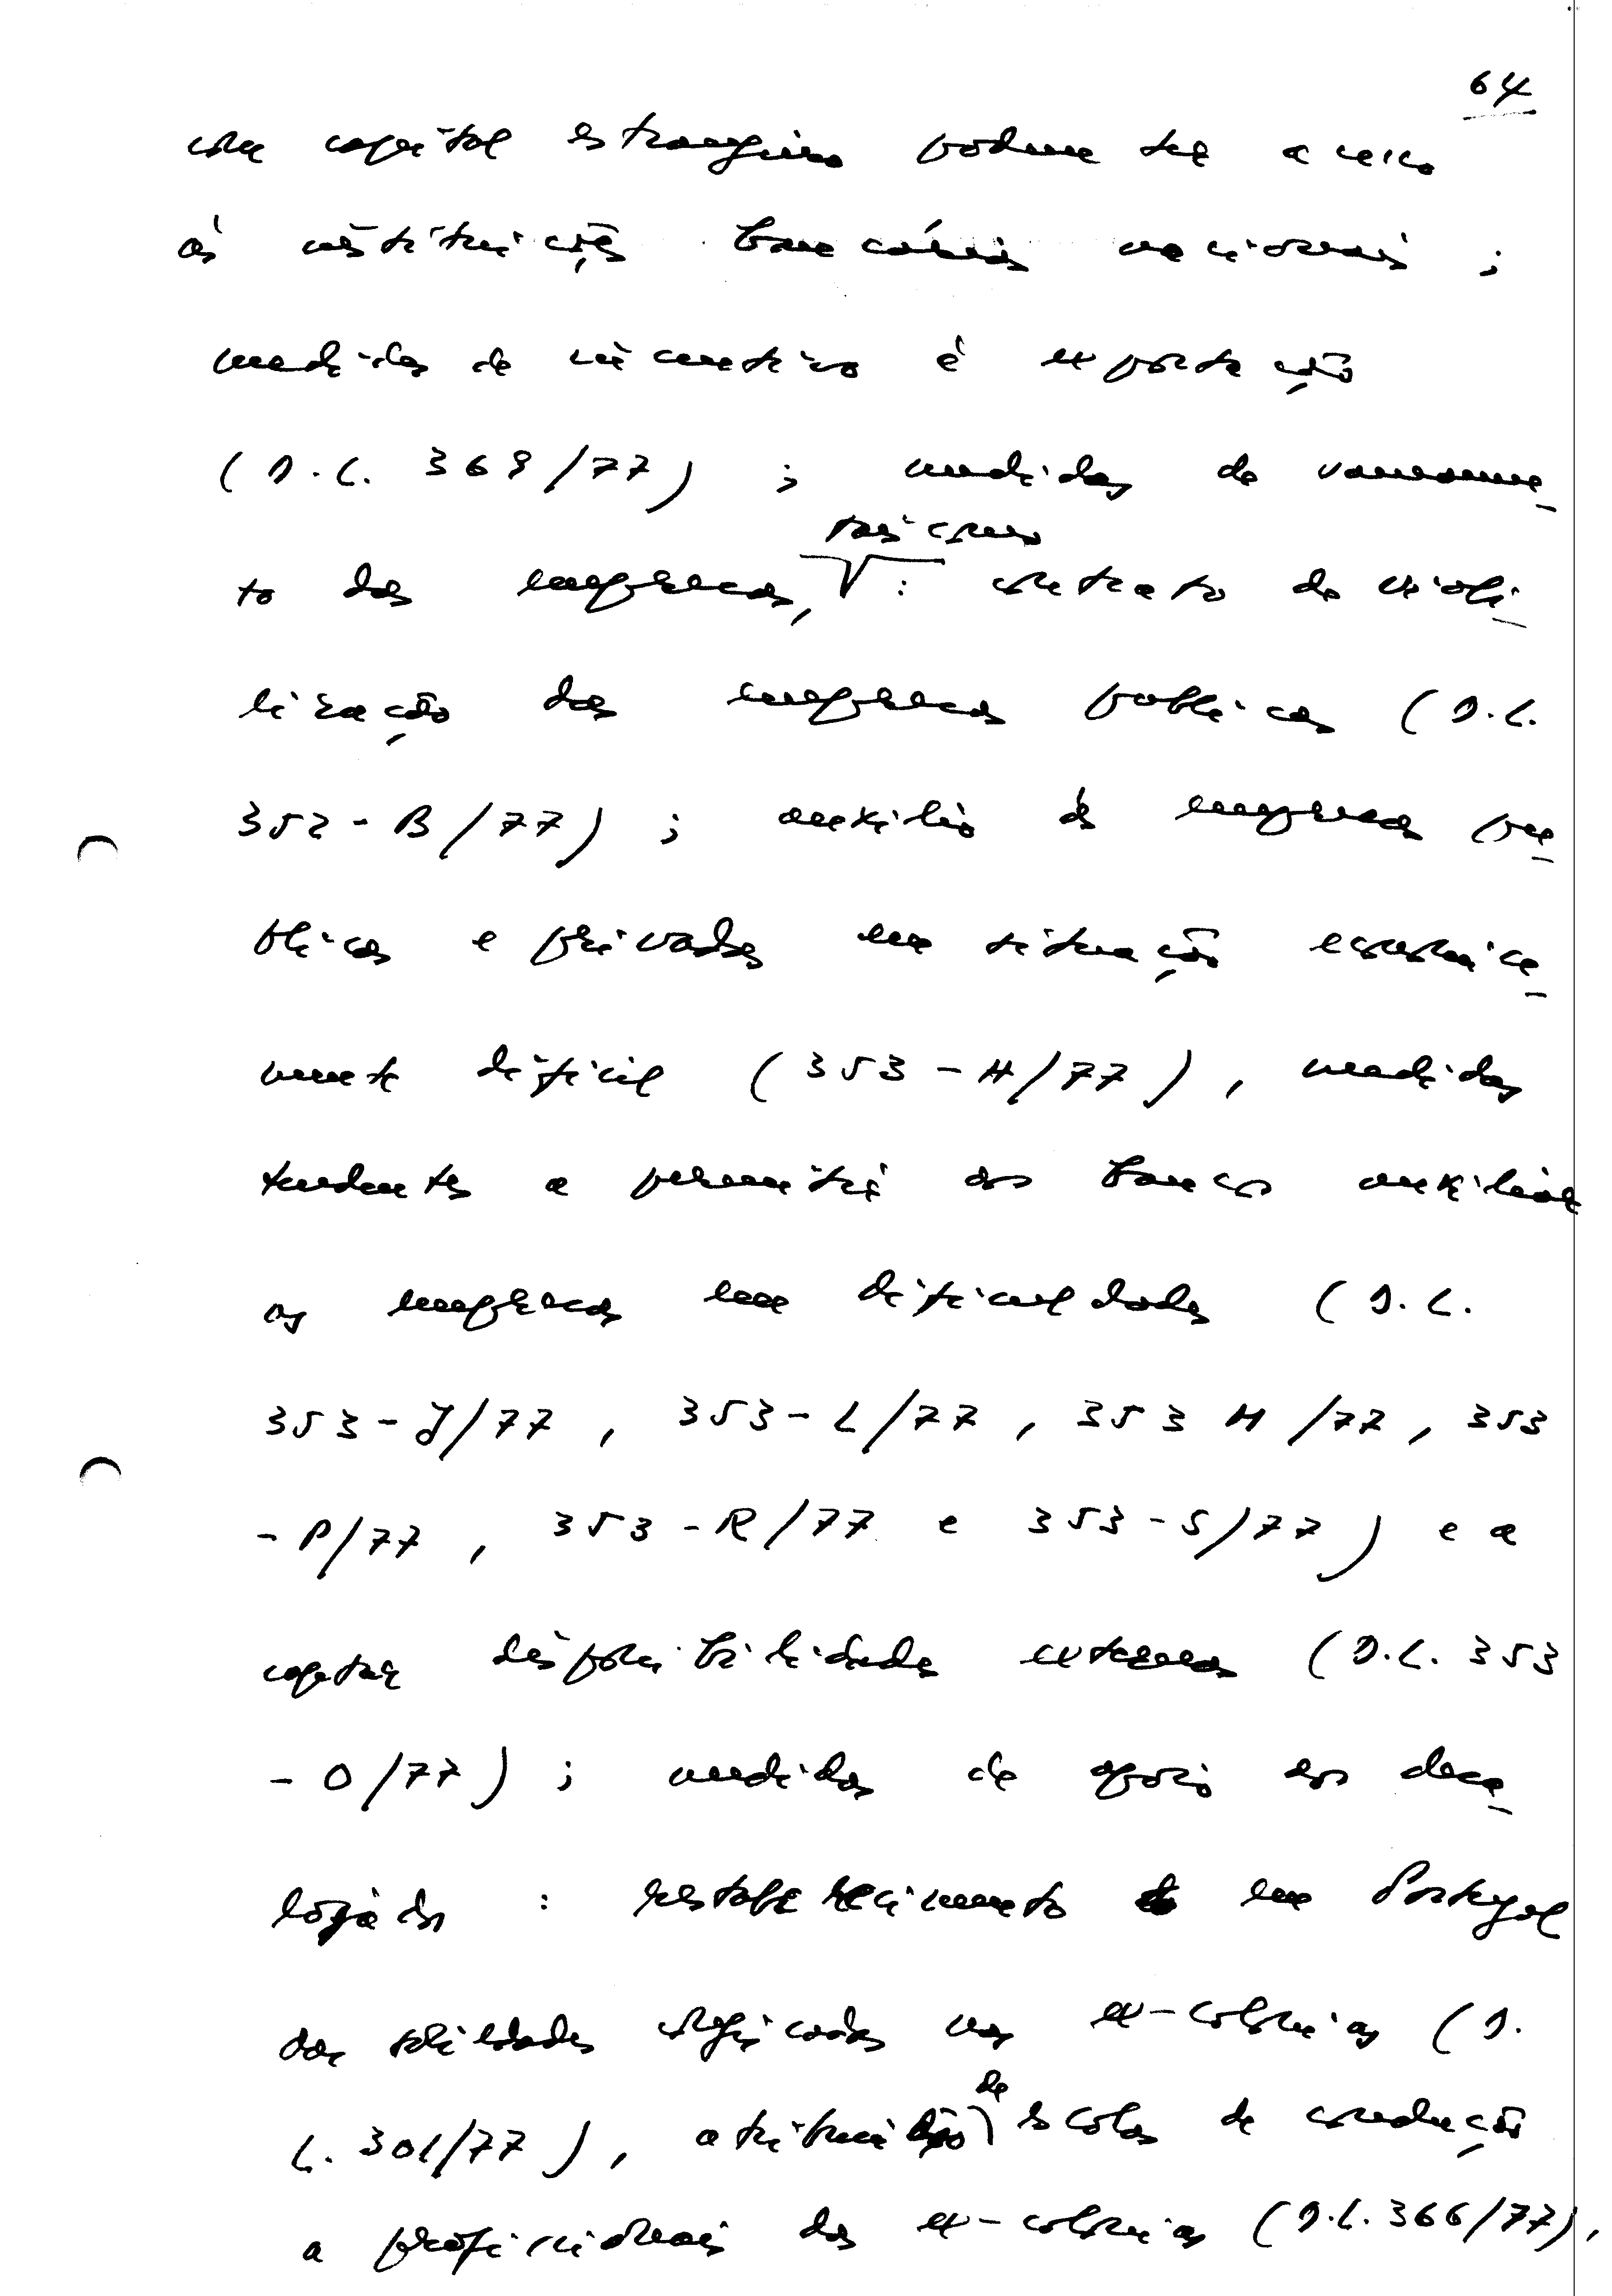 64
com capital estrangeiro podem ter acesso
às instituições bancárias nacionais ;
medidas de incentivo à exportação
(D.L. 368/77) ; medidas de saneamen-
tos criou
to das empresas, : contrato de viabi-
lização das empresas públicas (D.L.
352-B/77) ; auxílio às empresas pú-
blicas e privadas em situação economica-
mente difícil (353-H/77), medidas
tendentes a permitir aos bancos auxiliar
as empresas em dificuldades (D.L.
353-J/77, 353-L/77, 353 M/77, 353
-P/77, 353-R/77 e 353-S/77) e a
captar disponibilidades externas (D.L. 353
-O/77) ; medidas de apoio aos desa-
lojados : restabelecimento em Portugal
das sociedades nas ex-colónias (D.
L. 301/77), atribuição de escolas de condução
a profissionais das ex-colónias (D.L. 366/77),